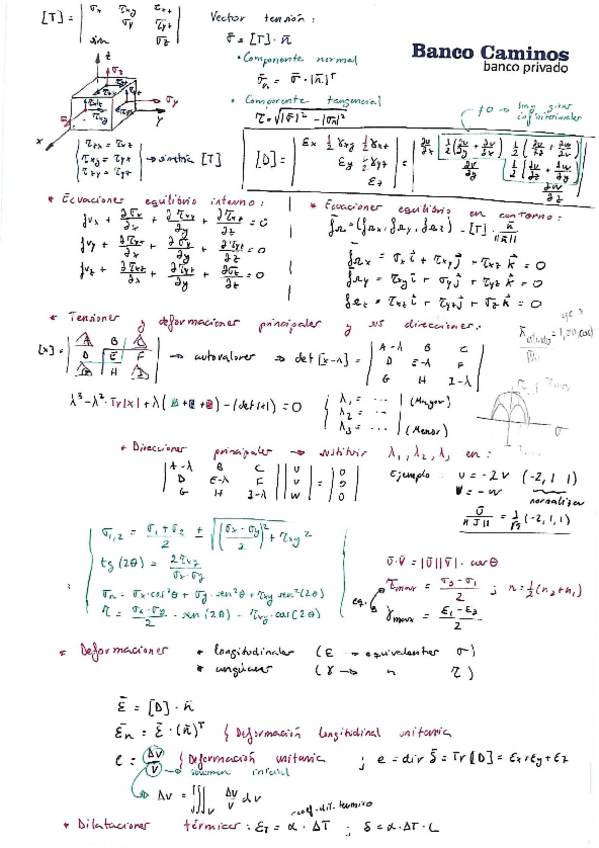 [T] = | σx τxy τxz
σy τyz
sim σz |
Vector tensión:
σ̄ = [T] · n̄
• Componente normal
σ̄n = σ̄ · (n̄)ᵀ
• Componente tangencial
τ = √|σ̄|² - |σn|²
Banco Caminos
banco privado
z
σz
σy
τxy
y
x
τzx = τxz
τxy = τyx
τzy = τyz
→ simetría [T]
≠0 → hay giros infinitesimales
[D] = | εx ½γxy ½γxz
εy ½γyz
εz | = | ∂u/∂x ½(∂u/∂y + ∂v/∂x) ½(∂u/∂z + ∂w/∂x)
∂v/∂y ½(∂v/∂z + ∂w/∂y)
∂w/∂z |
* Ecuaciones equilibrio interno:
fvx + ∂σx/∂x + ∂τxy/∂y + ∂τxz/∂z = 0
fvy + ∂τxy/∂x + ∂σy/∂y + ∂τyz/∂z = 0
fvz + ∂τxz/∂x + ∂τyz/∂y + ∂σz/∂z = 0
* Ecuaciones equilibrio en contorno:
f̄Ω = (fΩx, fΩy, fΩz) - [T] · n̄/||n̄||
fΩx = σx i + τxy j + τxz k = 0
fΩy = τxy i + σy j + τyz k = 0
fΩz = τxz i + τyz j + σz k = 0
* Tensiones y deformaciones principales y sus direcciones:
[x] = | A B C
D E F
G H I | → autovalores → det [x-λ] = | A-λ B C
D E-λ F
G H I-λ |
σ
λ³ - λ² · Tr|x| + λ( + + ) - (det|x|) = 0
λ1 = ... (Mayor)
λ2 = ...
λ3 = ... (Menor)
* Direcciones principales → sustituir λ1, λ2, λ3 en:
| A-λ B C
D E-λ F
G H I-λ | | U
V
W | = | 0
0
0 |
Ejemplo: U = -2V (-2, 1 1)
V = -W normalizar
Ū/||Ū|| = 1/√ (-2, 1, 1)
σ1,2 = (σ1 + σ2)/2 ± √((σx - σy)/2)² + τxy²
tg (2θ) = 2τxy/(σx - σy)
σn = σx · cos²θ + σy · sen²θ + τxy sen(2θ)
τ = (σx - σy)/2 · sen (2θ) - τxy · cos(2θ)
ū · v̄ = |ū||v̄| · cos θ
τmax = (σ3 - σ1)/2 ; n = ½(n3 + n1)
eq.
γmax = (ε1 - ε3)/2
* Deformaciones • longitudinales (ε → equivalentes σ)
• angulares (γ → n τ)
ε̄ = [D] · n̄
ε̄n = ε̄ · (n̄)ᵀ { Deformación longitudinal unitaria
e = Δv/v { Deformación unitaria ; e = div δ̄ = Tr [D] = εx + εy + εz
→ volumen inicial
→ Δv = ∭v Δv/v dv
coef. dil. térmico
* Dilataciones térmicas: εT = α · ΔT ; δ = α · ΔT · L